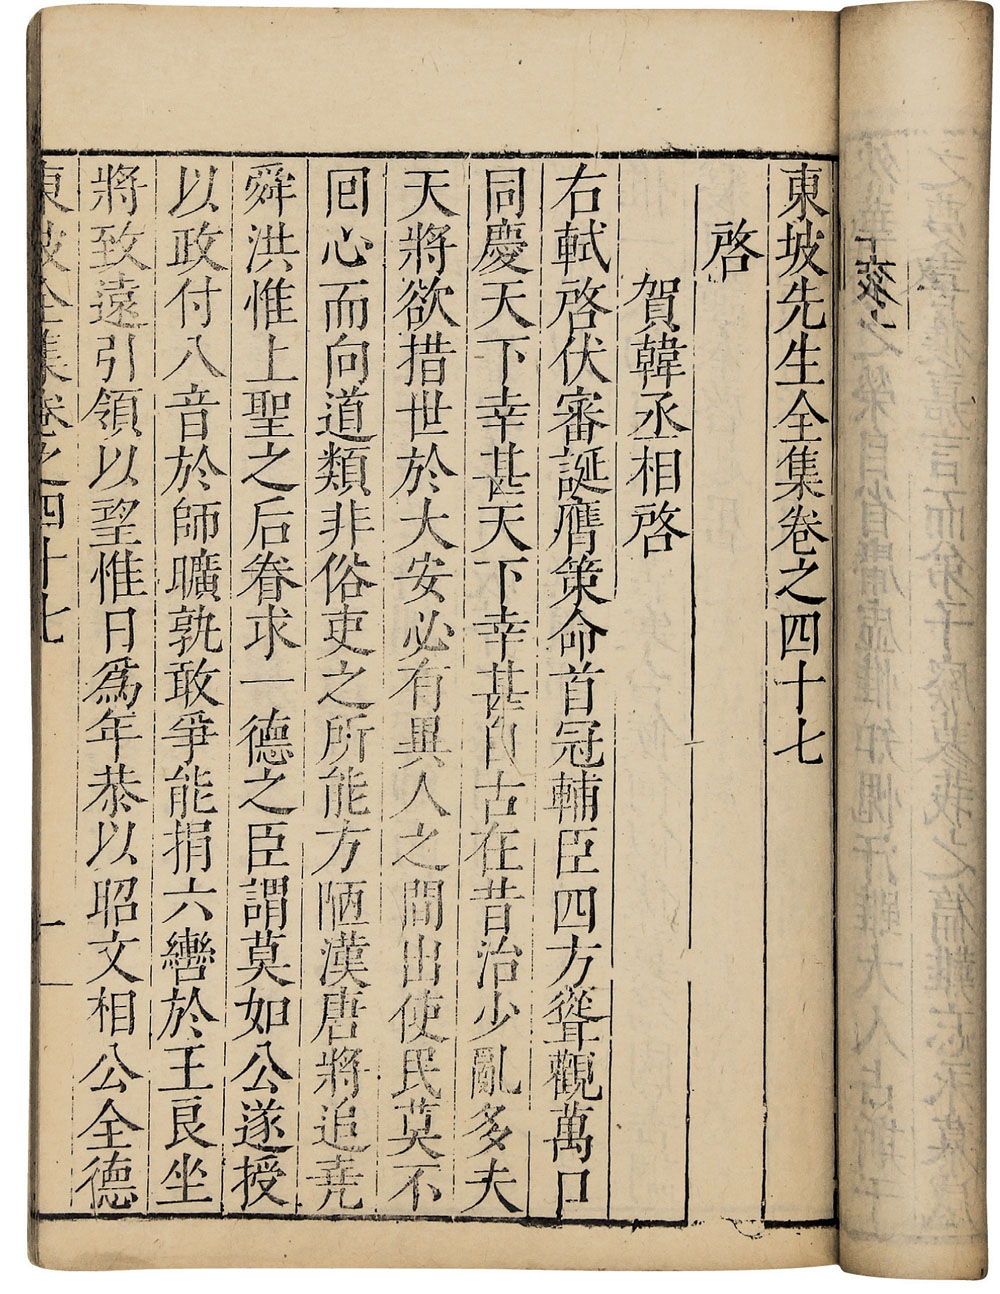 東坡先生全集卷之四十七
啓
賀韓丞相啓
右軾啓伏審誕膺策命首冠輔臣四方聳觀萬口
同慶天下幸甚天下幸甚自古在昔治少亂多夫
天將欲措世於大安必有異人之間出使民莫不
囘心而向道類非俗吏之所能方陋漢唐將追堯
舜洪惟上聖之后眷求一德之臣謂莫如公遂授
以政付八音於師曠孰敢爭能捐六轡於王良坐
將致遠引領以望惟日爲年恭以昭文相公全德
東坡全集卷之四十七 一